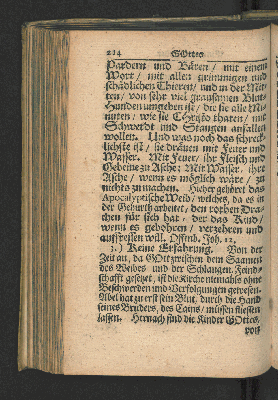 214 GOttes
Pardern und Bären / mit einem
Wort / mit allen grimmigen und
schädlichen Thieren / und in der Mit-
ten / von sehr viel grausamen Blut-
Hunden umgeben ist / die sie alle Mi-
nuten / wie sie Christo thaten / mit
Schwerdt und Stangen anfallen
wollen. Und was noch das schreck-
lichste ist / sie dräuen mit Feuer und
Wasser. Mit Feuer / ihr Fleisch und
Gebeine zu Asche; Mit Wasser / ihre
Asche / wenn es möglich wäre / zu
nichts zu machen. Hieher gehöret das
Apocalyptische Weib / welches, da es in
der Gebuhrt arbeitet / den rothen Dra-
chen für sich hat / der das Kind /
wenn es gebohren / verzehren und
auffressen will. Offenb. Joh. 12.
3.) Keine Erfahrung. Von der
Zeit an, da GOtt zwischen dem Saamen
des Weibes und der Schlangen, Feind-
schafft gesetzt, ist die Kirche niemahls ohne
Beschwerden und Verfolgungen gewesen.
Abel hat zu erst sein Blut, durch die Hand
seines Bruders, des Cains, müssen fliessen
lassen. Hernach sind die Kinder GOttes,
von